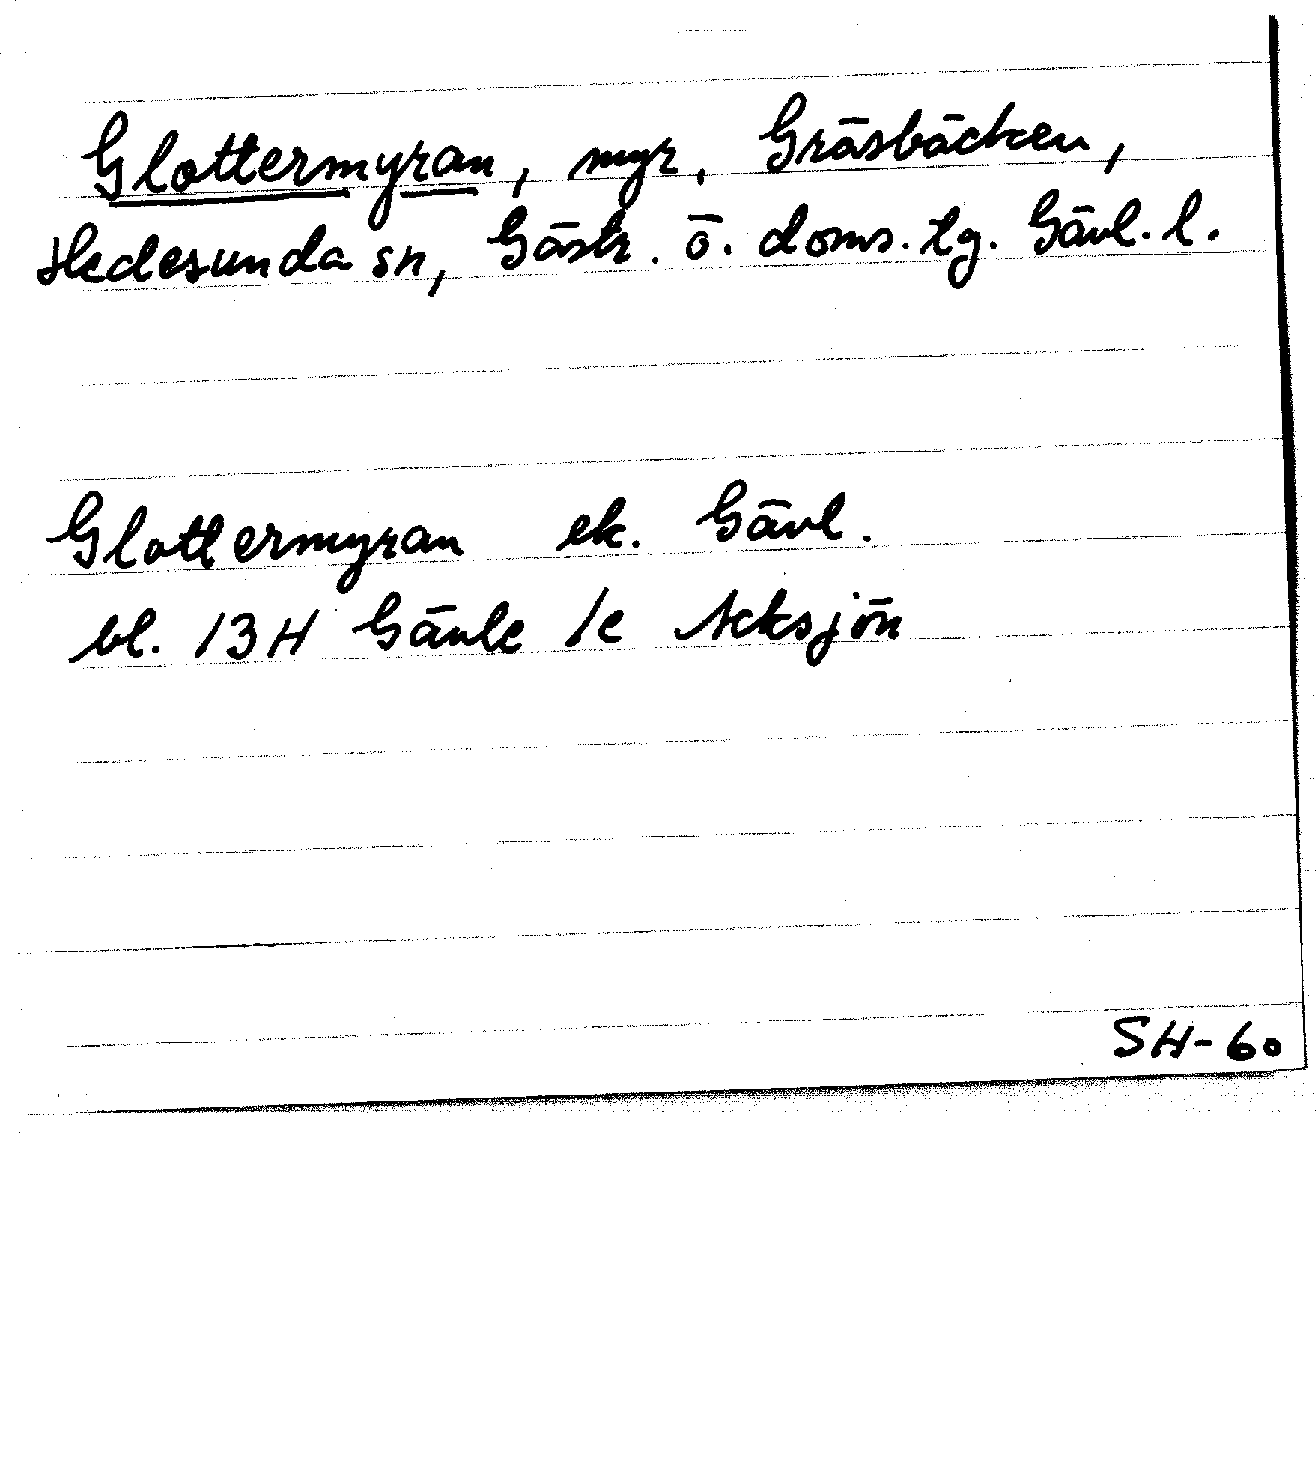 Glottermyran, myr, Gräsbäcken,
Hedesunda sn, Gästr. ö. doms. tg. Gävl. l.
Glottermyran ek. Gävl.
bl. 13H Gävle 1c Acksjön
SH-60